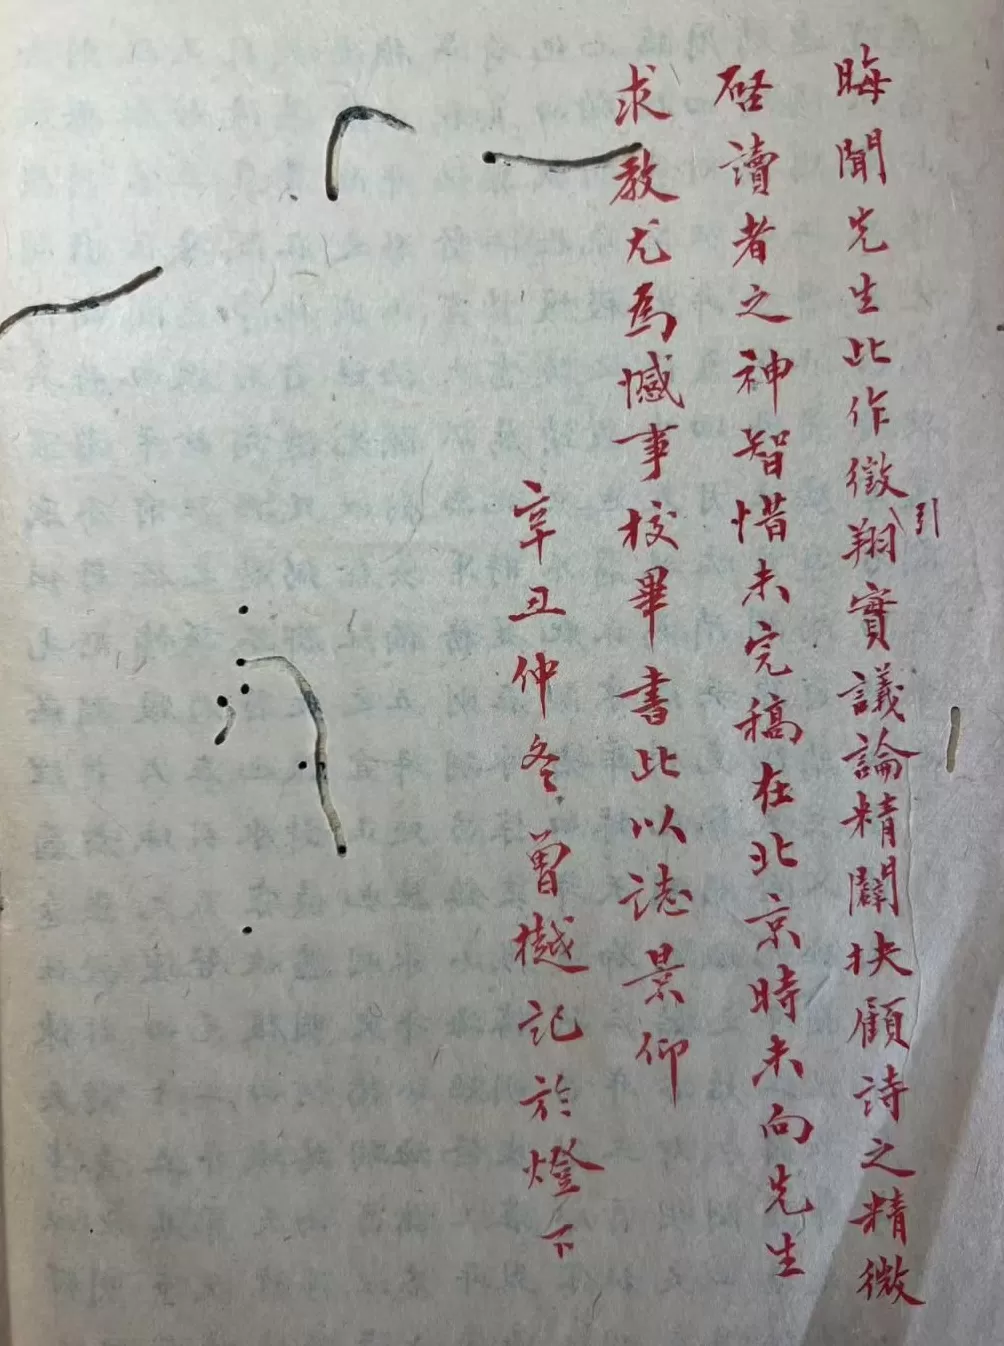 晦聞先生此作徵引翔實議論精闢抉顧詩之精微
啓讀者之神智惜未完稿在北京時未向先生
求教尤爲憾事校畢書此以誌景仰
辛丑仲冬曾樾記於燈下